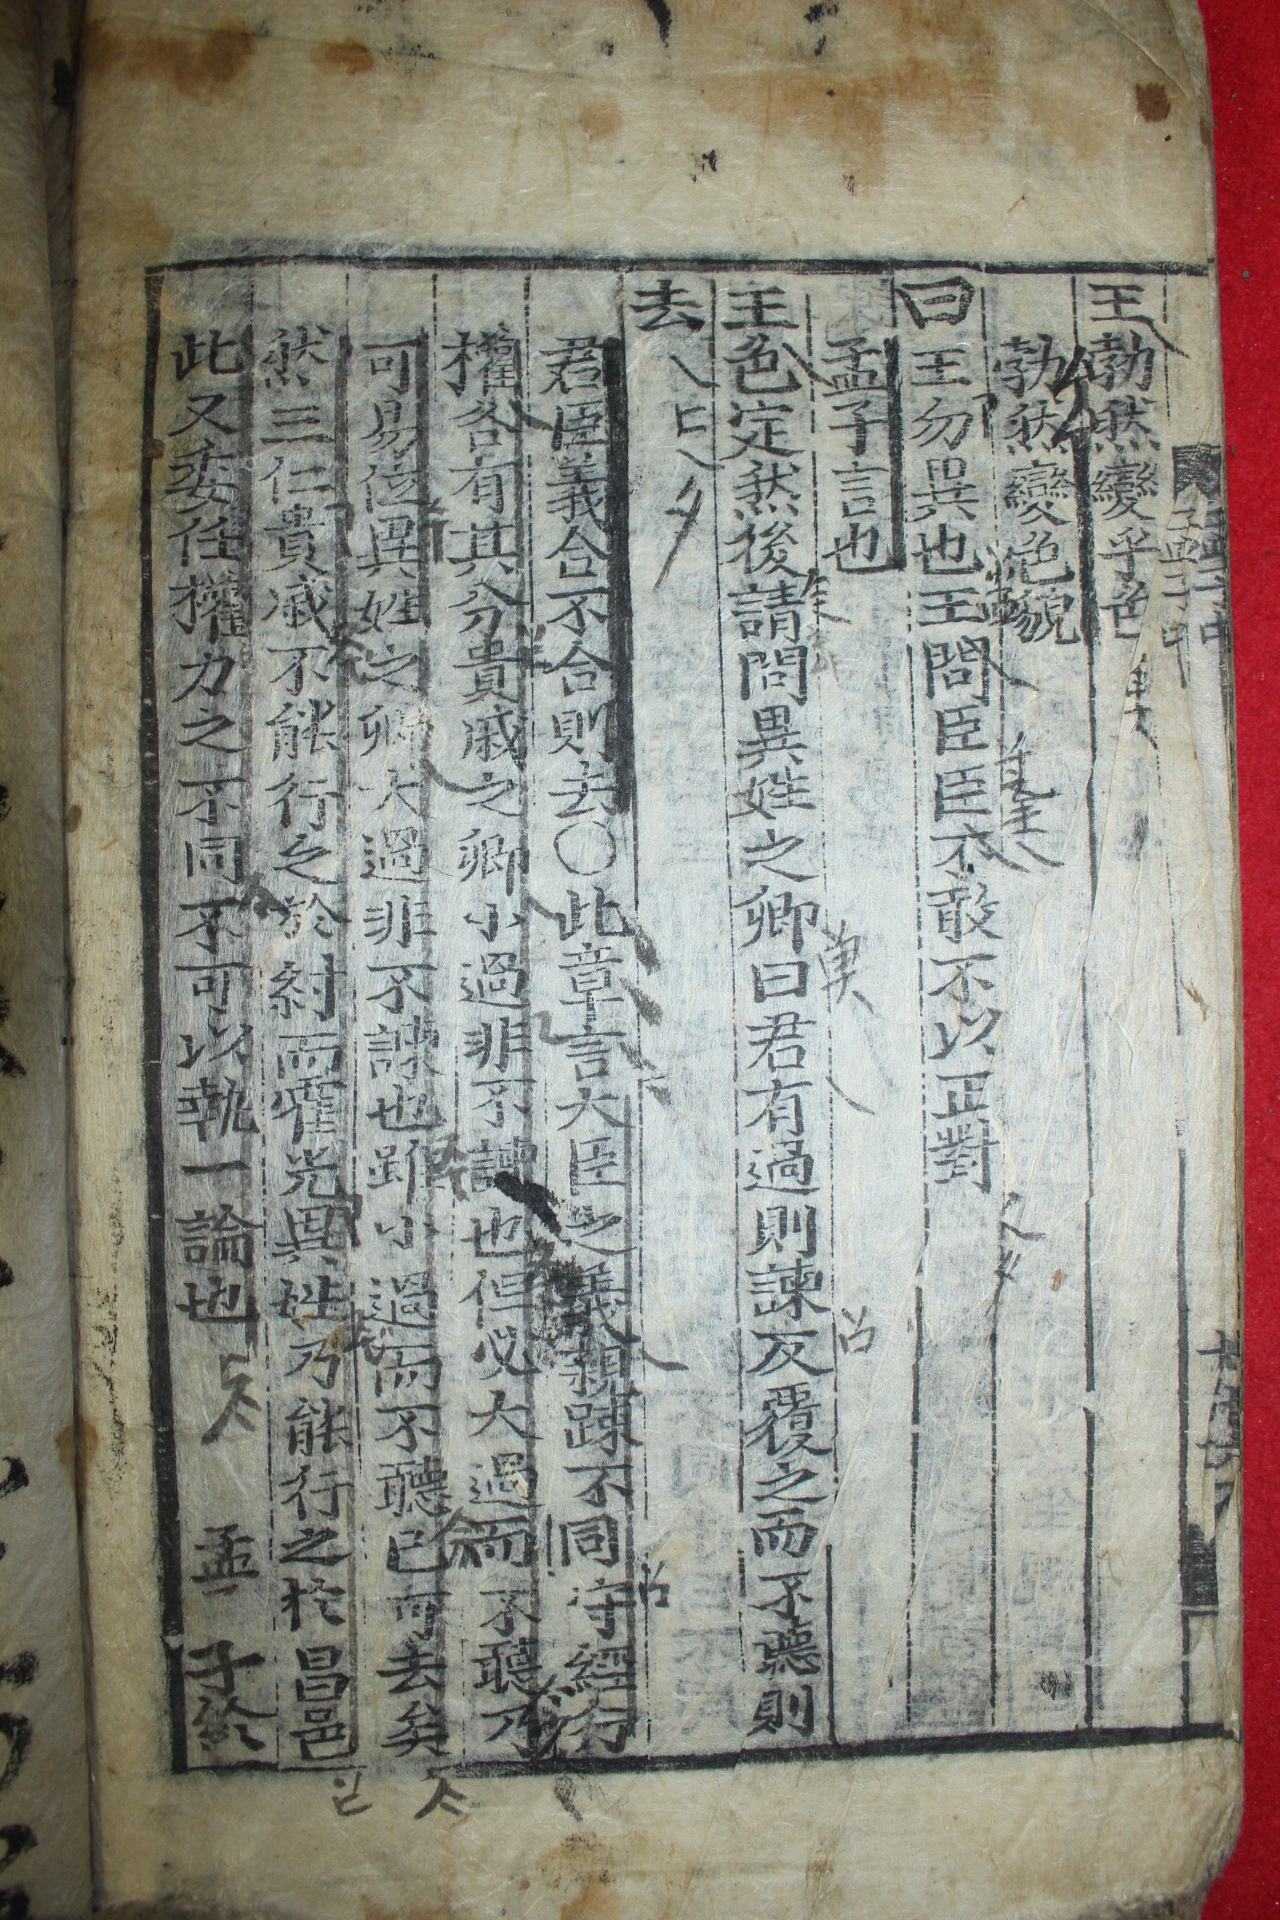 王勃然變乎色
勃然變色貌
曰王勿異也王問臣臣不敢不以正對
孟子言也
王色定然後請問異姓之卿曰君有過則諫反覆之而不聽則
去
君臣義合不合則去○此章言大臣之義親踈不同守經行
權各有其分貴戚之卿小過非不諫也但必大過而不聽乃
可易位異姓之卿大過非不諫也雖小過而不聽已可去矣
然三仁貴戚不能行之於紂而霍光異姓乃能行之於昌邑
此又委任權力之不同不可以執一論也 孟子終